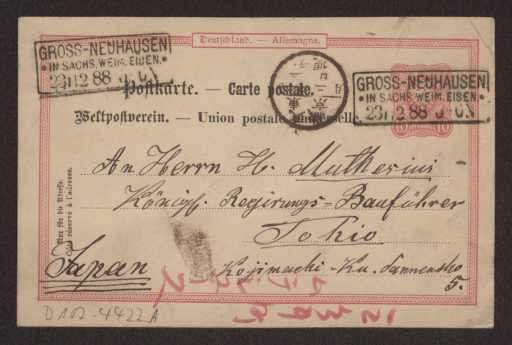 Deutschland. — Allemagne.
GROSS-NEUHAUSEN
* IN SACHS. WEIM. EISEN. *
23/12 88
GROSS-NEUHAUSEN
* IN SACHS. WEIM. EISEN. *
23/12 88
Postkarte. — Carte postale.
Weltpostverein. — Union postale universelle.
An Herrn H. Muthesius
Königl. Regierungs-Bauführer
Tokio
Japan
Kojimachi-Ku.
5.
Nur für die Adresse.
Côté réservé à l'adresse.
D 102-4422 A